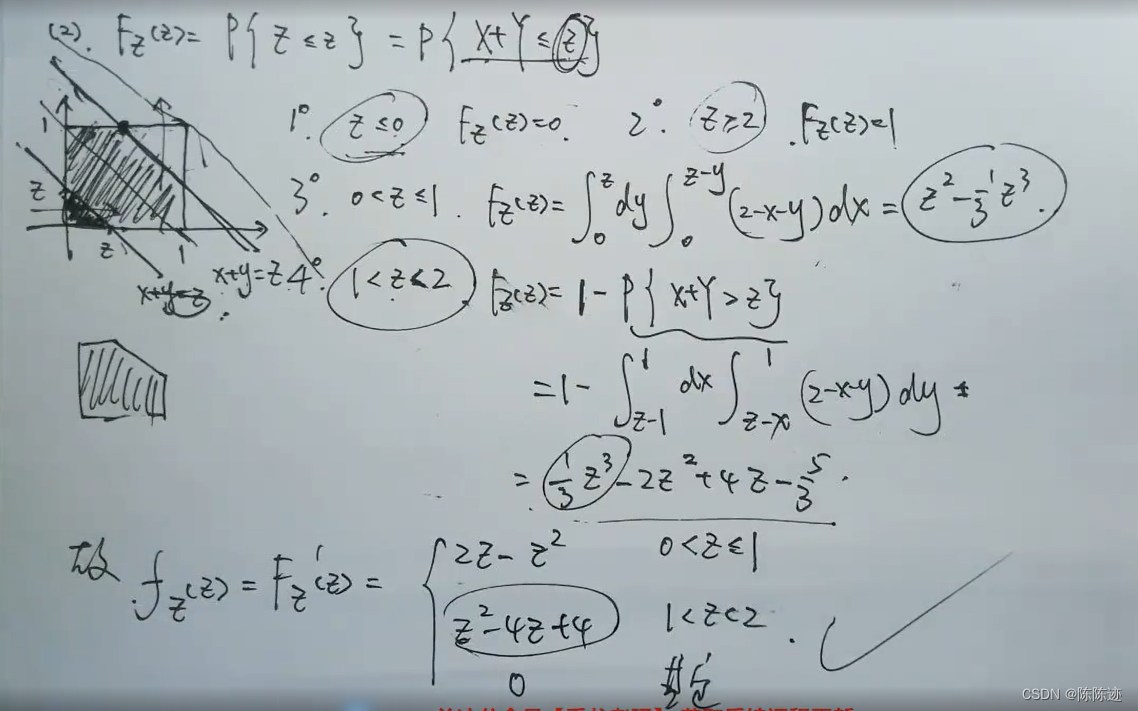 (2). F_Z(z) = P{Z ≤ z} = P{X+Y ≤ z}
1°. z ≤ 0 F_Z(z)=0. 2°. z ≥ 2 . F_Z(z)=1
3°. 0 < z ≤ 1 . F_Z(z) = ∫_0^z dy ∫_0^{z-y} (2-x-y) dx = z² - 1/3 z³ .
1
z
z 1
x+y=z
x+y=z
4°. 1 < z < 2 F_Z(z) = 1 - P{X+Y > z}
= 1 - ∫_{z-1}^1 dx ∫_{z-x}^1 (2-x-y) dy
= 1/3 z³ - 2z² + 4z - 5/3 .
故 f_Z(z) = F_Z'(z) = { 2z - z² 0 < z ≤ 1
z² - 4z + 4 1 < z < 2 .
0 其它
CSDN @陈陈迹